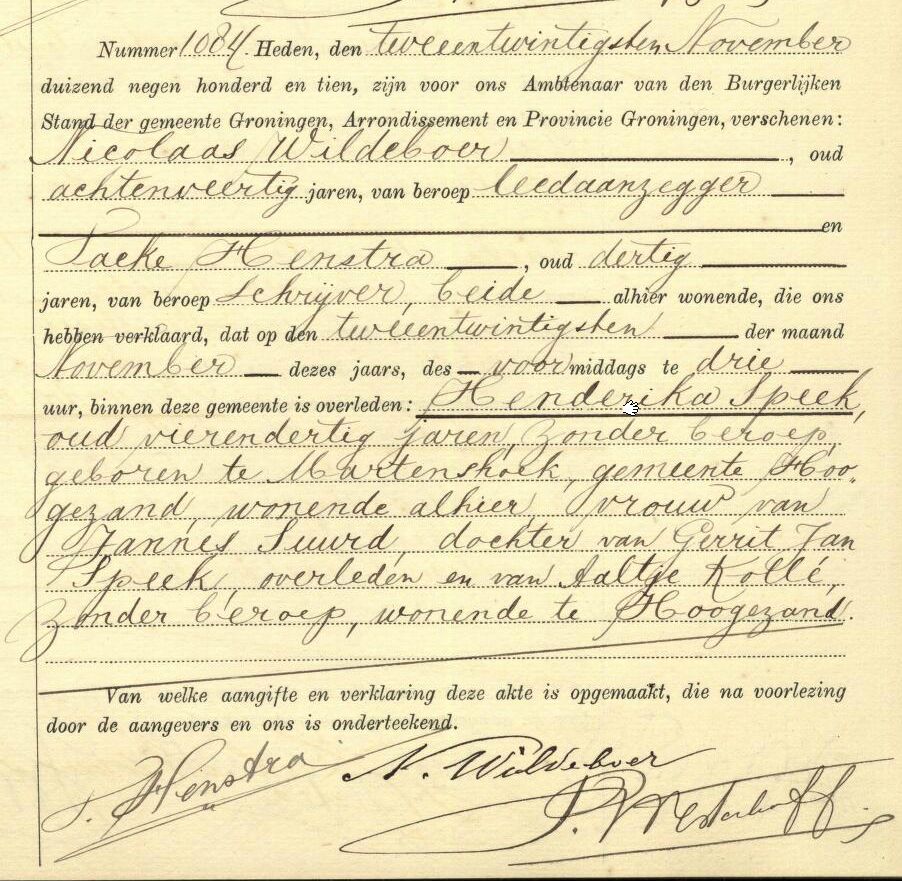 Nummer 1084 Heden, den tweeentwintigsten November
duizend negen honderd en tien, zijn voor ons Ambtenaar van den Burgerlijken
Stand der gemeente Groningen, Arrondissement en Provincie Groningen, verschenen:
Nicolaas Wildeboer, oud
achtenveertig jaren, van beroep leedaanzegger
en
Paeke Henstra, oud dertig
jaren, van beroep schrijver, beide alhier wonende, die ons
hebben verklaard, dat op den tweeentwintigsten der maand
November dezes jaars, des voormiddags te drie
uur, binnen deze gemeente is overleden: Henderika Speek,
oud vierendertig jaren, zonder beroep,
geboren te Martenshoek, gemeente Hoo„
gezand, wonende alhier, vrouw van
Jannes Suurd, dochter van Gerrit Jan
Speek, overleden en van Aaltje Kollé,
zonder beroep, wonende te Hoogezand.
Van welke aangifte en verklaring deze akte is opgemaakt, die na voorlezing
door de aangevers en ons is onderteekend.
P. Henstra N. Wildeboer
P. Westerhoff